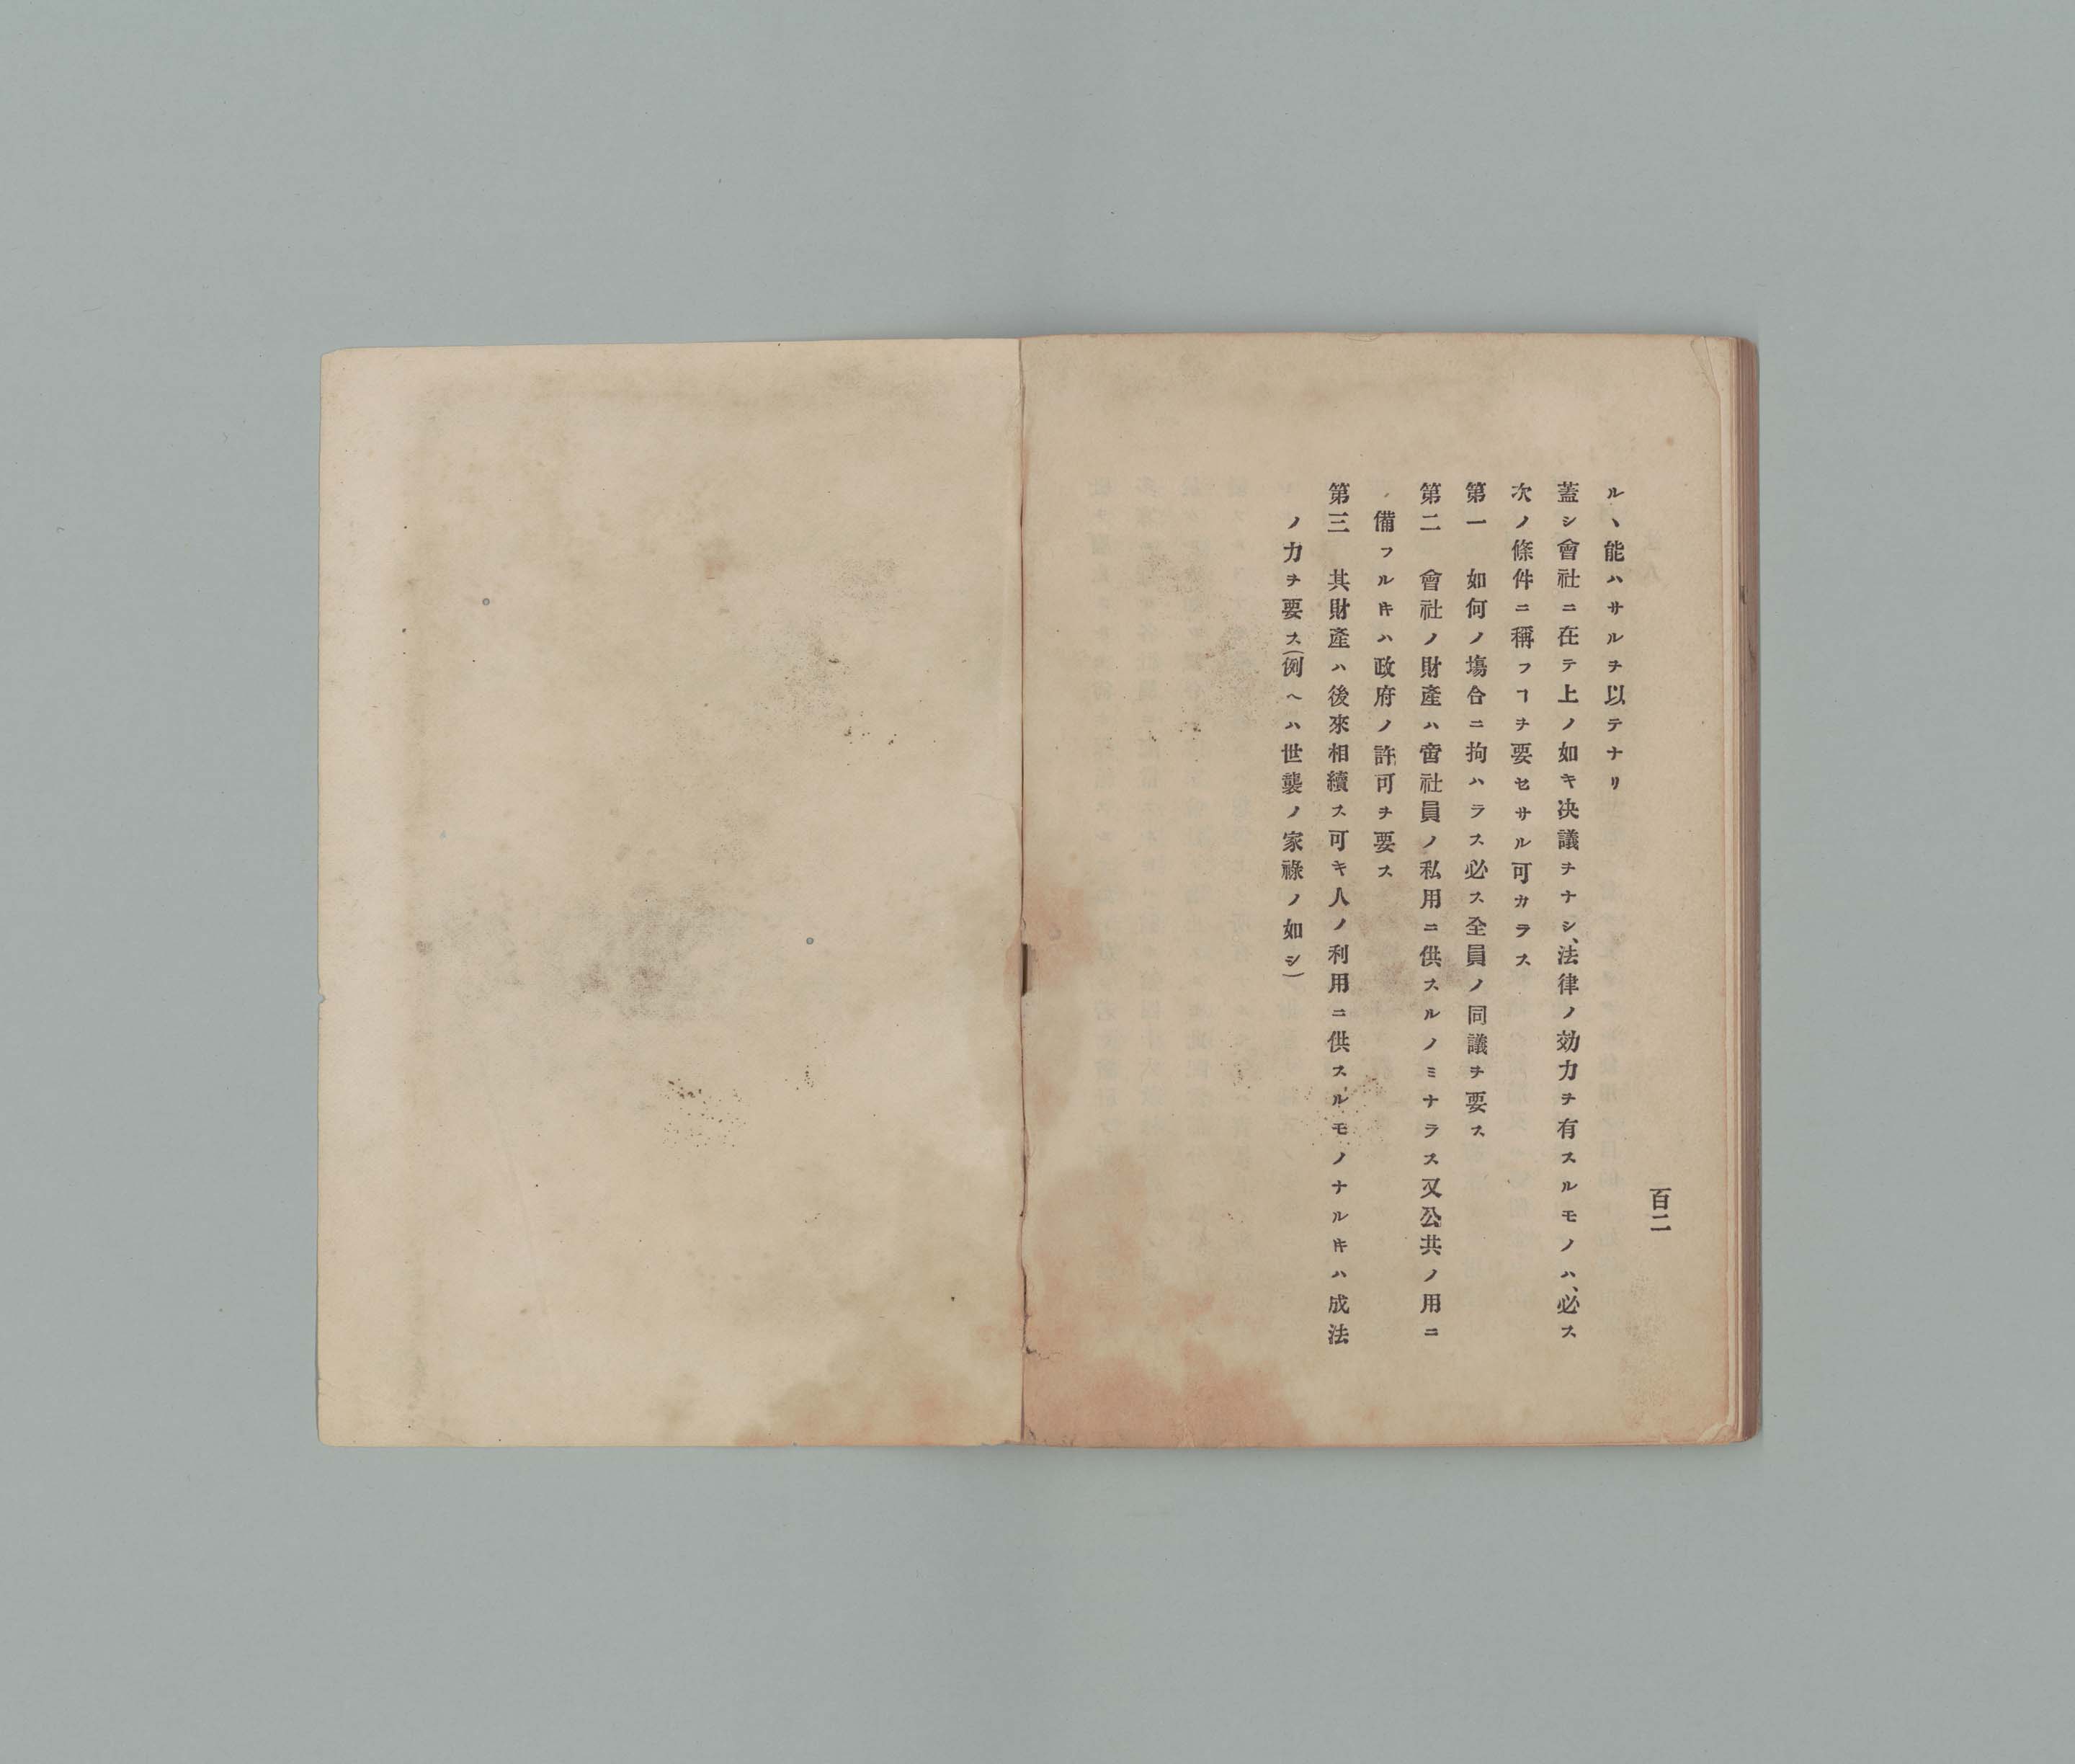 百二
ルヽ能ハサルヲ以テナリ
蓋シ會社ニ在テ上ノ如キ决議ヲナシ、法律ノ効力ヲ有スルモノハ、必ス
次ノ條件ニ稱フヿヲ要セサル可カラス
第一　如何ノ塲合ニ拘ハラス必ス全員ノ同議ヲ要ス
第二　會社ノ財產ハ啻社員ノ私用ニ供スルノミナラス又公共ノ用ニ
備フルキハ政府ノ許可ヲ要ス
第三　其財產ハ後來相續ス可キ人ノ利用ニ供スルモノナルキハ成法
ノ力ヲ要ス（例ヘハ世襲ノ家祿ノ如シ）